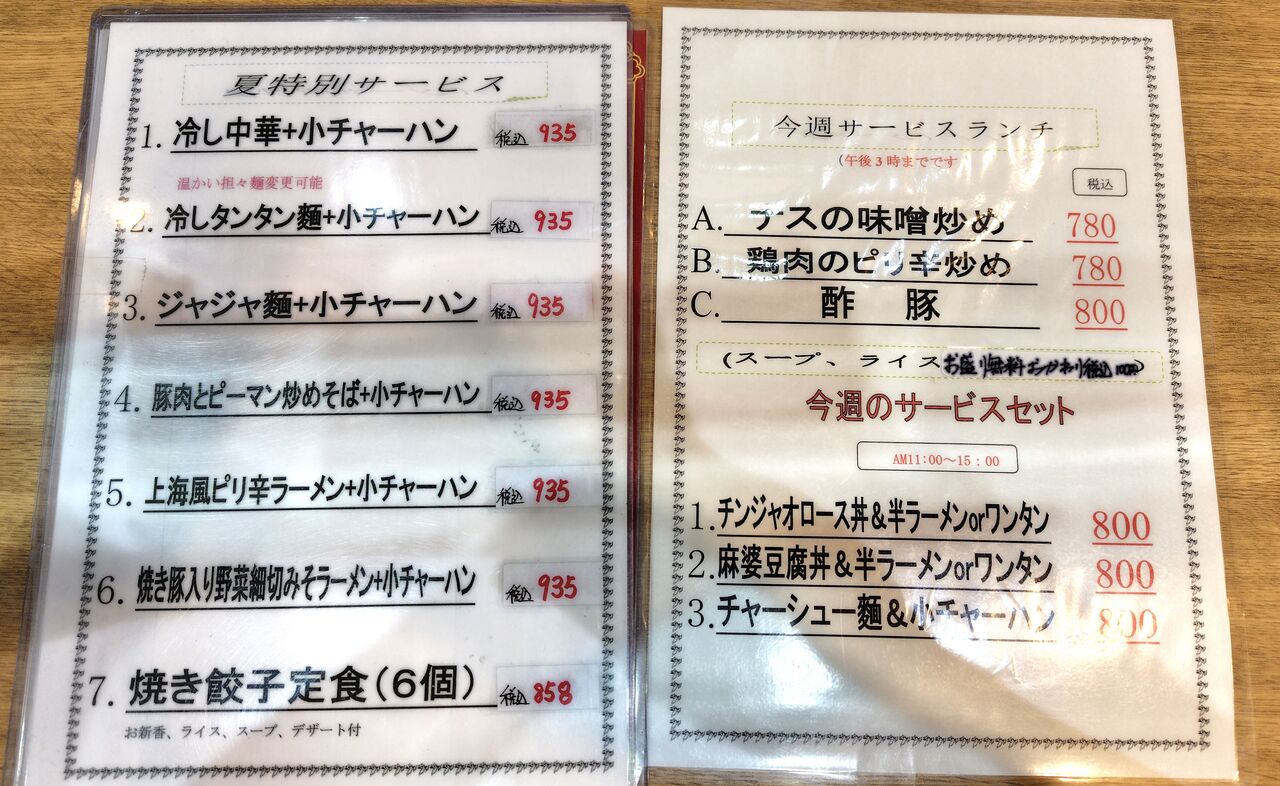 夏特別サービス
1. 冷し中華+小チャーハン 税込 935
温かい担々麺変更可能
2. 冷しタンタン麺+小チャーハン 税込 935
3. ジャジャ麺+小チャーハン 税込 935
4. 豚肉とピーマン炒めそば+小チャーハン 税込 935
5. 上海風ピリ辛ラーメン+小チャーハン 税込 935
6. 焼き豚入り野菜細切みそラーメン+小チャーハン 税込 935
7. 焼き餃子定食(6個) 税込 858
お新香、ライス、スープ、デザート付
今週サービスランチ
(午後3時までです
税込
A. ナスの味噌炒め 780
B. 鶏肉のピリ辛炒め 780
C. 酢豚 800
(スープ、ライスお盛り無料おかわり税込100円)
今週のサービスセット
AM11:00～15:00
1. チンジャオロース丼&半ラーメンorワンタン 800
2. 麻婆豆腐丼&半ラーメンorワンタン 800
3. チャーシュー麺&小チャーハン 800